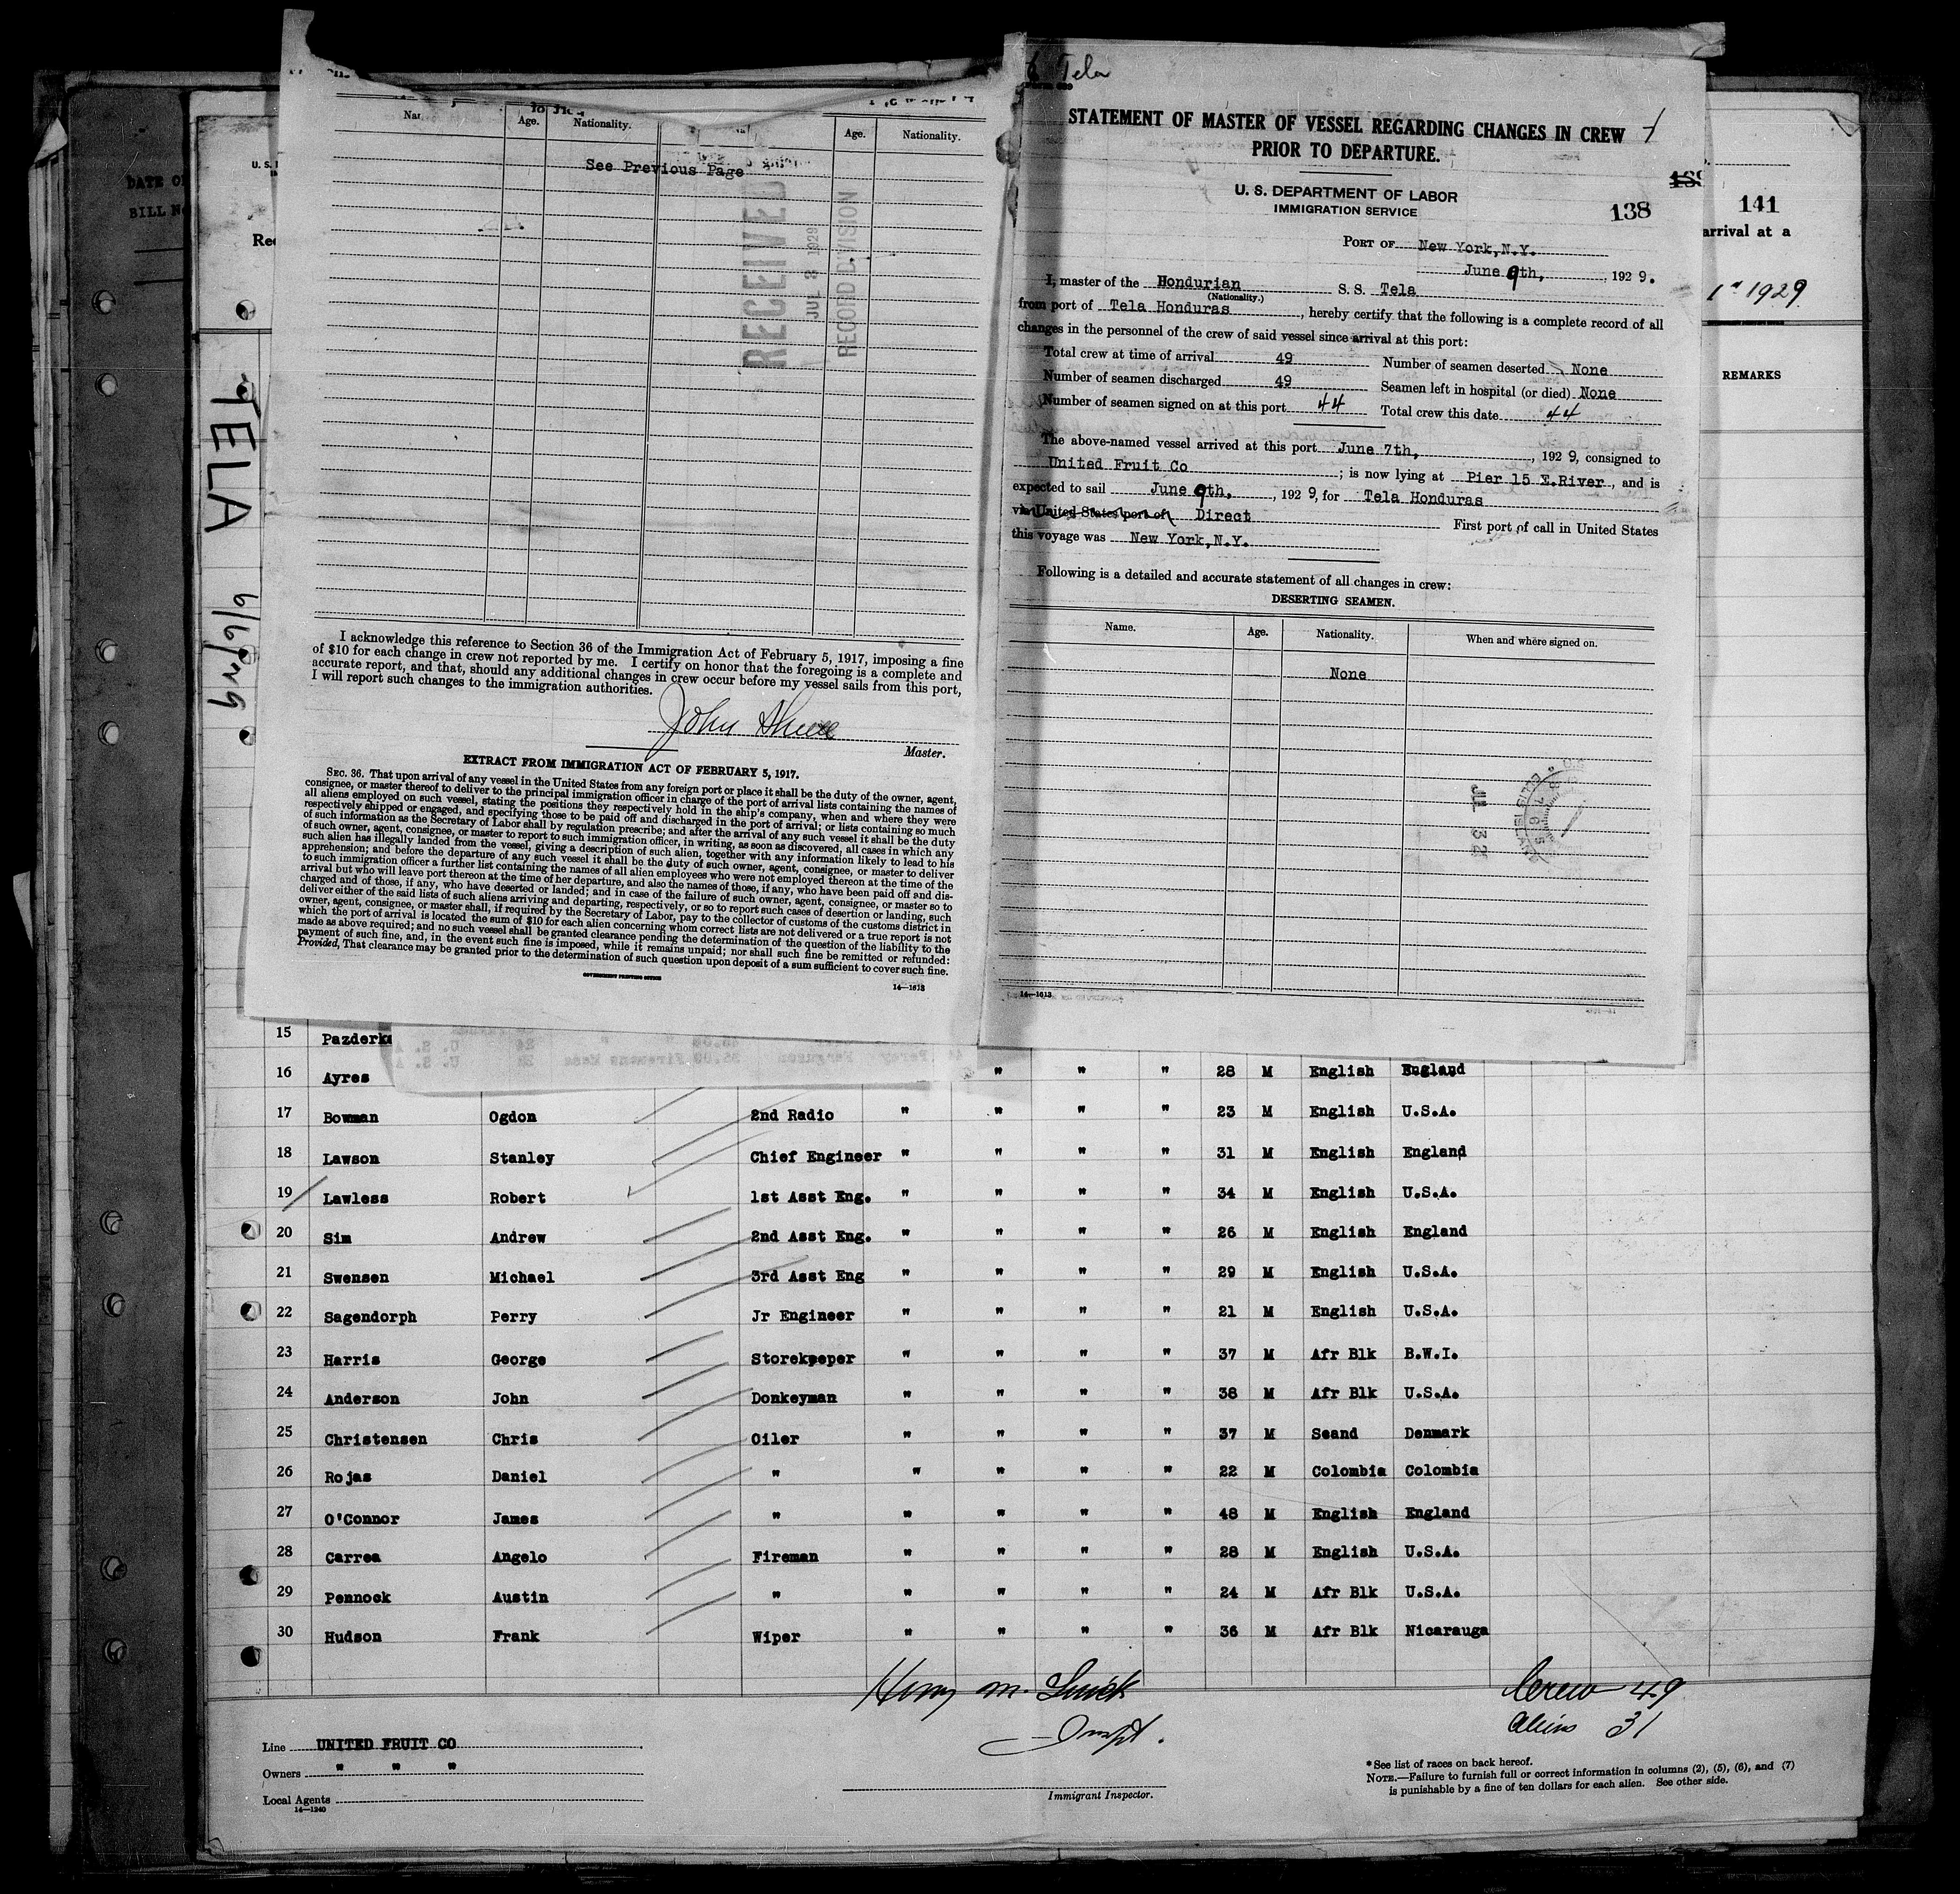 Tela
STATEMENT OF MASTER OF VESSEL REGARDING CHANGES IN CREW
PRIOR TO DEPARTURE.
U. S. DEPARTMENT OF LABOR
IMMIGRATION SERVICE
138
PORT OF New York,N.Y.
June 9th, 1929.
I, master of the Hondurian S. S. Tela
(Nationality.)
from port of Tela Honduras, hereby certify that the following is a complete record of all
changes in the personnel of the crew of said vessel since arrival at this port:
Total crew at time of arrival 49 Number of seamen deserted None
Number of seamen discharged 49 Seamen left in hospital (or died) None
Number of seamen signed on at this port 44 Total crew this date 44
The above-named vessel arrived at this port June 7th, 1929, consigned to
United Fruit Co ; is now lying at Pier 15 E.River, and is
expected to sail June 9th, 1929, for Tela Honduras
via United States port of Direct First port of call in United States
this voyage was New York,N.Y.
Following is a detailed and accurate statement of all changes in crew:
DESERTING SEAMEN.
Name. Age. Nationality. When and where signed on.
None
14—1613
Age. Nationality. Age. Nationality.
See Previous Page
RECEIVED
JUL 3 1929
RECORD DIVISION
I acknowledge this reference to Section 36 of the Immigration Act of February 5, 1917, imposing a fine
of $10 for each change in crew not reported by me. I certify on honor that the foregoing is a complete and
accurate report, and that, should any additional changes in crew occur before my vessel sails from this port,
I will report such changes to the immigration authorities.
John
Master.
EXTRACT FROM IMMIGRATION ACT OF FEBRUARY 5, 1917.
SEC. 36. That upon arrival of any vessel in the United States from any foreign port or place it shall be the duty of the owner, agent,
consignee, or master thereof to deliver to the principal immigration officer in charge of the port of arrival lists containing the names of
all aliens employed on such vessel, stating the positions they respectively hold in the ship's company, when and where they were
respectively shipped or engaged, and specifying those to be paid off and discharged in the port of arrival; or lists containing so much
of such information as the Secretary of Labor shall by regulation prescribe; and after the arrival of any such vessel it shall be the duty
of such owner, agent, consignee, or master to report to such immigration officer, in writing, as soon as discovered, all cases in which any
such alien has illegally landed from the vessel, giving a description of such alien, together with any information likely to lead to his
apprehension; and before the departure of any such vessel it shall be the duty of such owner, agent, consignee, or master to deliver
to such immigration officer a further list containing the names of all alien employees who were not employed thereon at the time of the
arrival but who will leave port thereon at the time of her departure, and also the names of those, if any, who have been paid off and dis-
charged and of those, if any, who have deserted or landed; and in case of the failure of such owner, agent, consignee, or master so to
deliver either of the said lists of such aliens arriving and departing, respectively, or so to report such cases of desertion or landing, such
owner, agent, consignee, or master shall, if required by the Secretary of Labor, pay to the collector of customs of the customs district in
which the port of arrival is located the sum of $10 for each alien concerning whom correct lists are not delivered or a true report is not
made as above required; and no such vessel shall be granted clearance pending the determination of the question of the liability to the
payment of such fine, and, in the event such fine is imposed, while it remains unpaid; nor shall such fine be remitted or refunded:
Provided, That clearance may be granted prior to the determination of such question upon deposit of a sum sufficient to cover such fine.
GOVERNMENT PRINTING OFFICE
14—1613
141
arrival at a
1929
REMARKS
TELA 6/6/29
15 Pazderka
16 Ayres " " " 28 M English England
17 Bowman Ogdon 2nd Radio " " " " 23 M English U.S.A.
18 Lawson Stanley Chief Engineer " " " " 31 M English England
19 Lawless Robert 1st Asst Eng. " " " " 34 M English U.S.A.
20 Sim Andrew 2nd Asst Eng. " " " " 26 M English England
21 Swensen Michael 3rd Asst Eng " " " " 29 M English U.S.A.
22 Sagendorph Perry Jr Engineer " " " " 21 M English U.S.A.
23 Harris George Storekpeper " " " " 37 M Afr Blk B.W.I.
24 Anderson John Donkeyman " " " " 38 M Afr Blk U.S.A.
25 Christensen Chris Oiler " " " " 37 M Scand Denmark
26 Rojas Daniel " " " " " 22 M Colombia Colombia
27 O'Connor James " " " " " 48 M English England
28 Carrea Angelo Fireman " " " " 28 M English U.S.A.
29 Pennock Austin " " " " " 24 M Afr Blk U.S.A.
30 Hudson Frank Wiper " " " " 36 M Afr Blk Nicarauga
Crew 49
Aliens 31
Line UNITED FRUIT CO
Owners " " "
Local Agents
14—1240
Immigrant Inspector.
* See list of races on back hereof.
NOTE.—Failure to furnish full or correct information in columns (2), (5), (6), and (7)
is punishable by a fine of ten dollars for each alien. See other side.